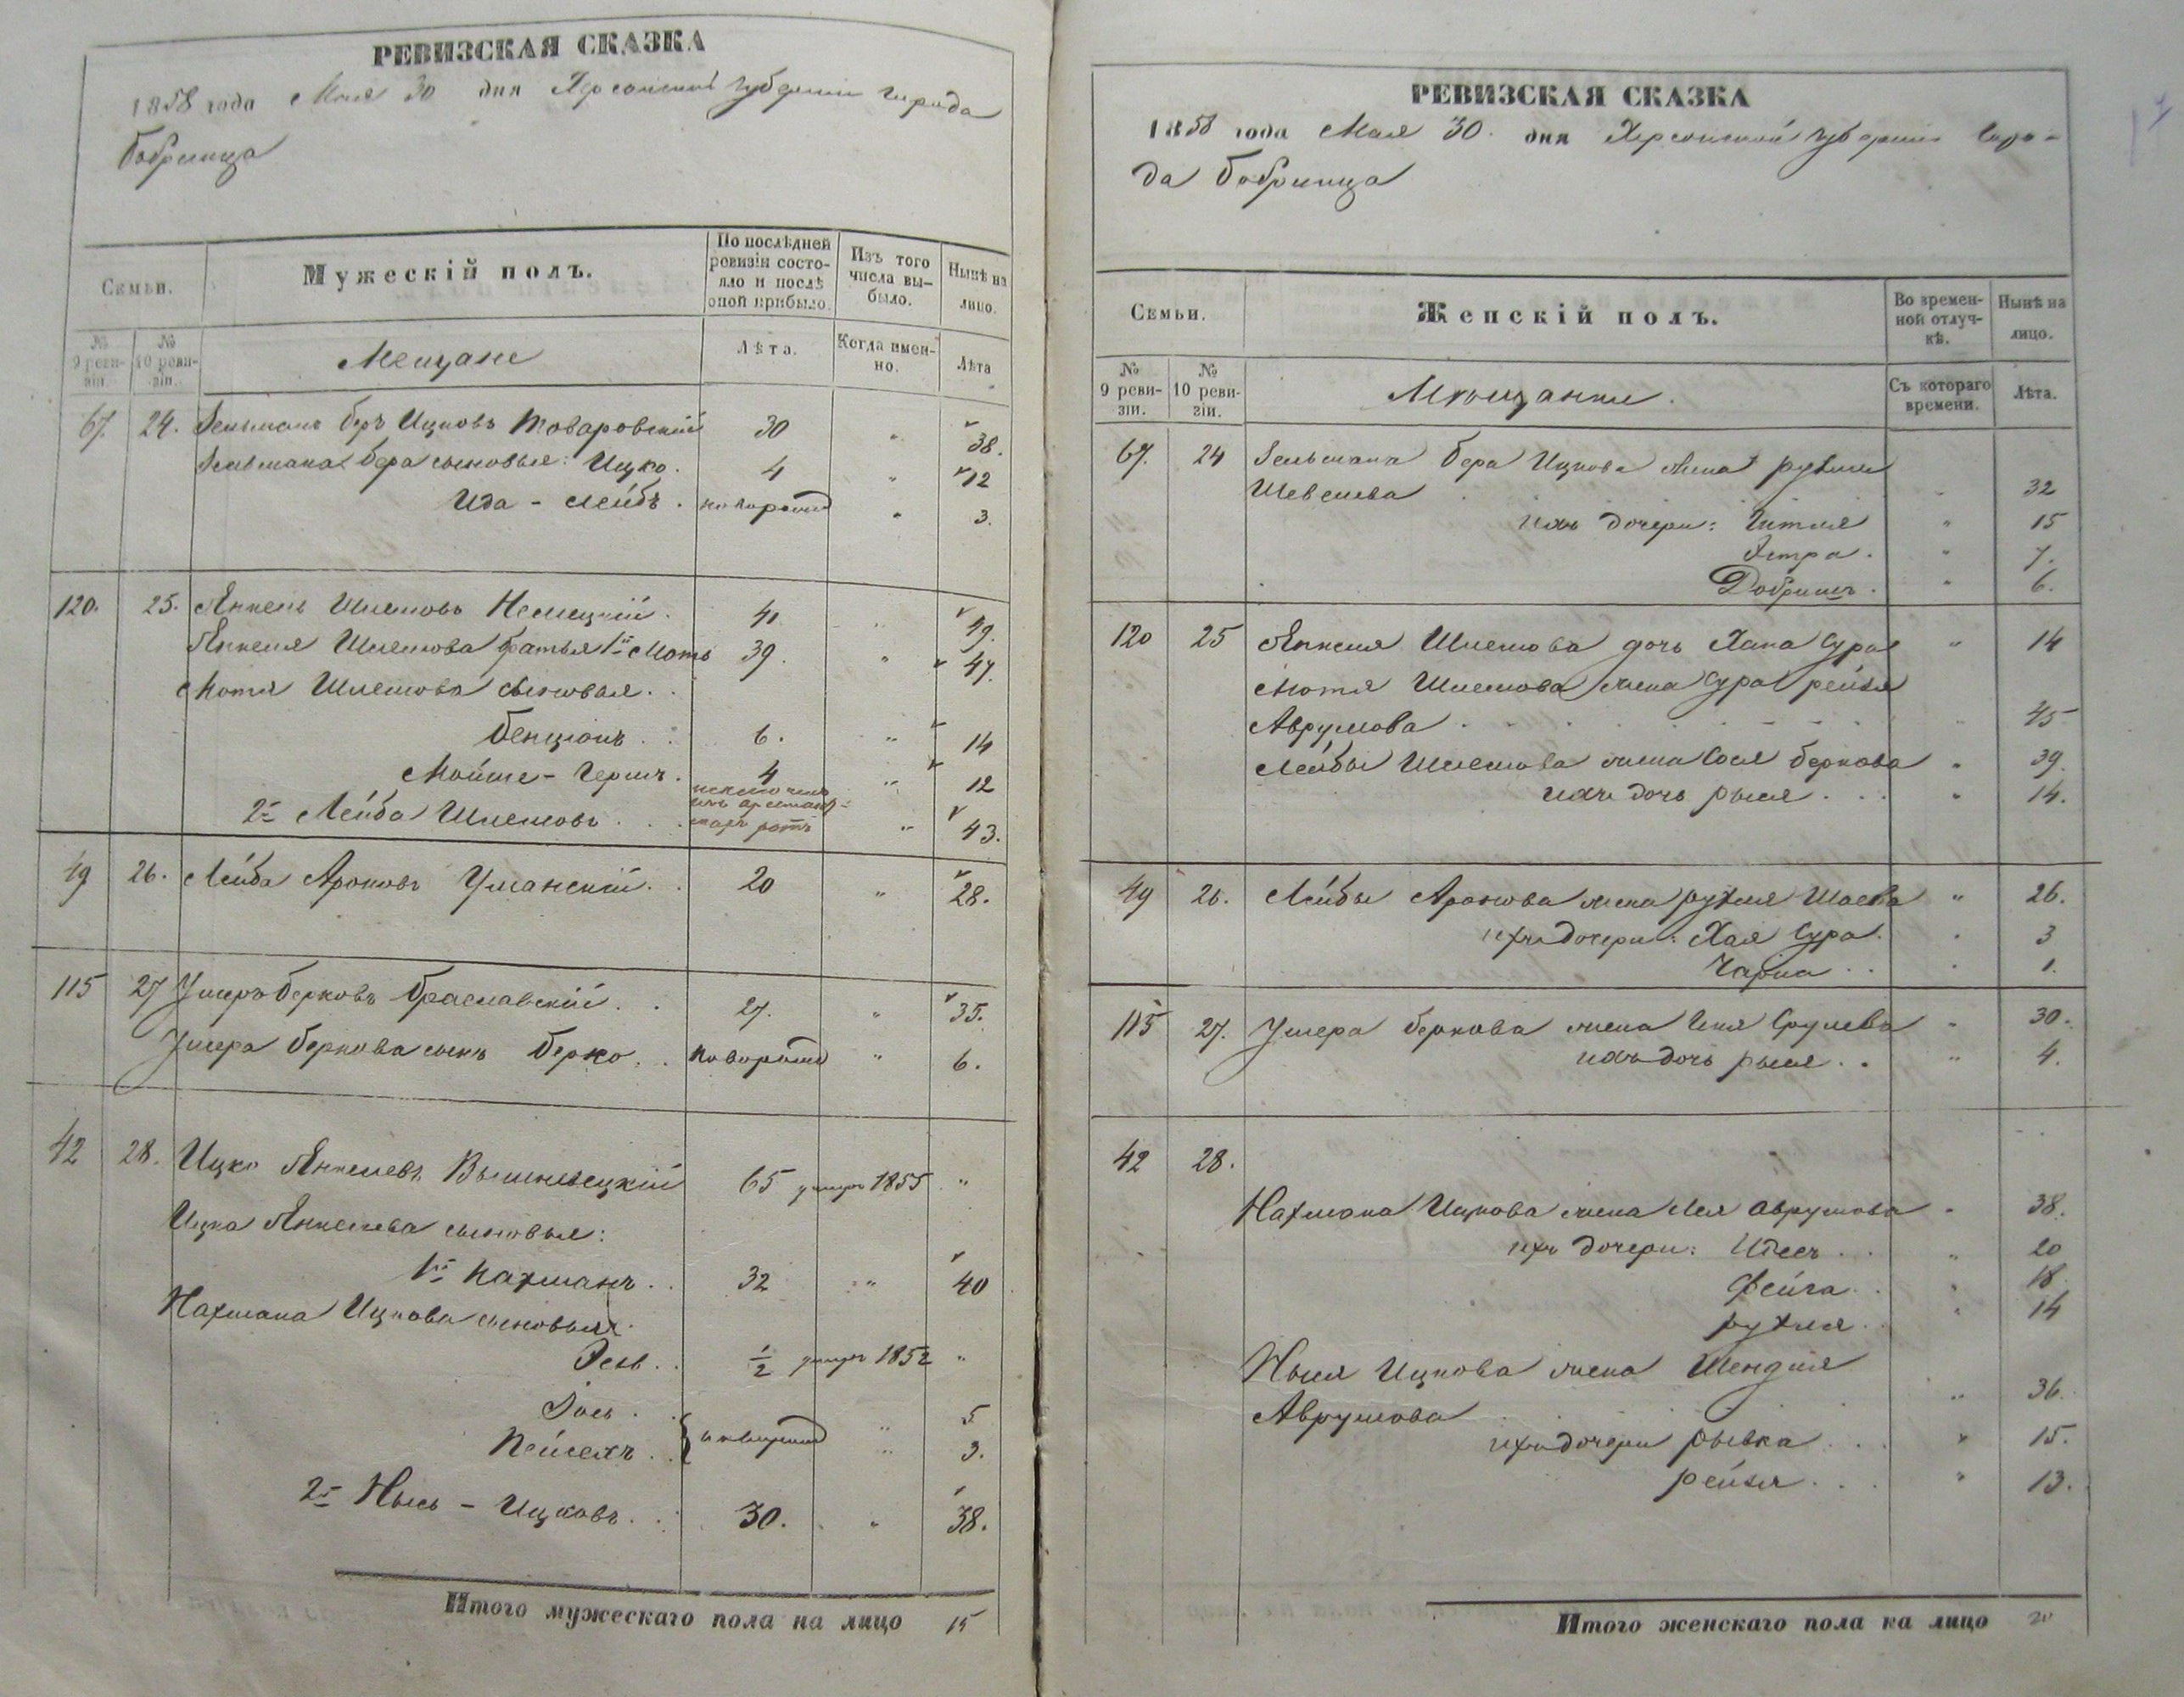 РЕВИЗСКАЯ СКАЗКА
1858 года Мая 30 дня Херсонской губернии города
Бобринца
Семьи.
Мужескій полъ.
По послѣдней ревизіи состояло и послѣ оной прибыло.
Изъ того числа выбыло.
Нынѣ на лицо.
№ 9 ревизіи.
№ 10 ревизіи.
Мещане
Лѣта.
Когда именно.
Лѣта
67. 24. Зельманъ Беръ Ицковъ Товаровскій 30 " 38.
Зельмана Бера сыновья: Ицко. 4 " 12
Ида - Лейбъ. новорожд " 3.
120. 25. Янкель Шлемовъ Немецкій. 41 " 49.
Янкеля Шлемова братья 1й Моть 39. " 47.
Мотя Шлемова сыновья. .
Бенціонъ . . 6. " 14
Мойше - Гершъ. 4 " 12
2й Лейба Шлемовъ . . . " 43.
49 26. Лейба Ароновъ Уманскій. . 20 " 28.
115 27 Умеръ Берковъ Браславскій . . 27. " 35.
Умера Беркова сынъ Берко . . новорожд " 6.
42 28. Ицко Янкелевъ Вышневецкій 65 умеръ 1855 "
Ицка Янкелева сыновья:
1й Нахманъ . . 32 " 40
Нахмана Ицкова сыновья:
Зель . . 1/2 умеръ 1852 "
Іось . . " 5
Пейсахъ . . новорожд " 3.
2й Нысь - Ицковъ . . 30. " 38.
Итого мужескаго пола на лицо 15
РЕВИЗСКАЯ СКАЗКА
1858 года Мая 30. дня Херсонской губернии Горо-
да Бобринца
Семьи.
Женскій полъ.
Во временной отлучкѣ.
Нынѣ на лицо.
№ 9 ревизіи.
№ 10 ревизіи.
Мѣщанки.
Съ котораго времени.
Лѣта.
67. 24 Зельмана Бера Ицкова жена Рухля
Шевелева " 32
ихъ дочери: Гитля " 15
Эстра. " 7.
Добришъ. " 6.
120 25 Янкеля Шлемова дочь Хана Сура " 14
Мотя Шлемова жена Сура Рейзя
Аврумова . . . " 45
Лейбы Шлемова жена Сося Беркова " 39.
ихъ дочь Рыся . . . " 14.
49 26. Лейбы Аронова жена Рухля Шаева " 26.
ихъ дочери: Хая Сура. " 3
Чарна . . " 1.
115 27. Умера Беркова жена Геня Срулева " 30.
ихъ дочь Рыся . . " 4.
42 28.
Нахмана Ицкова жена Лея Аврумова " 38.
ихъ дочери: Идесъ . . " 20
Фейга. . " 18.
Рухля. . " 14
Ныся Ицкова жена Шендля
Аврумова " 36.
ихъ дочери Рывка . . . " 15.
Рейзя . . . " 13.
Итого женскаго пола на лицо 20